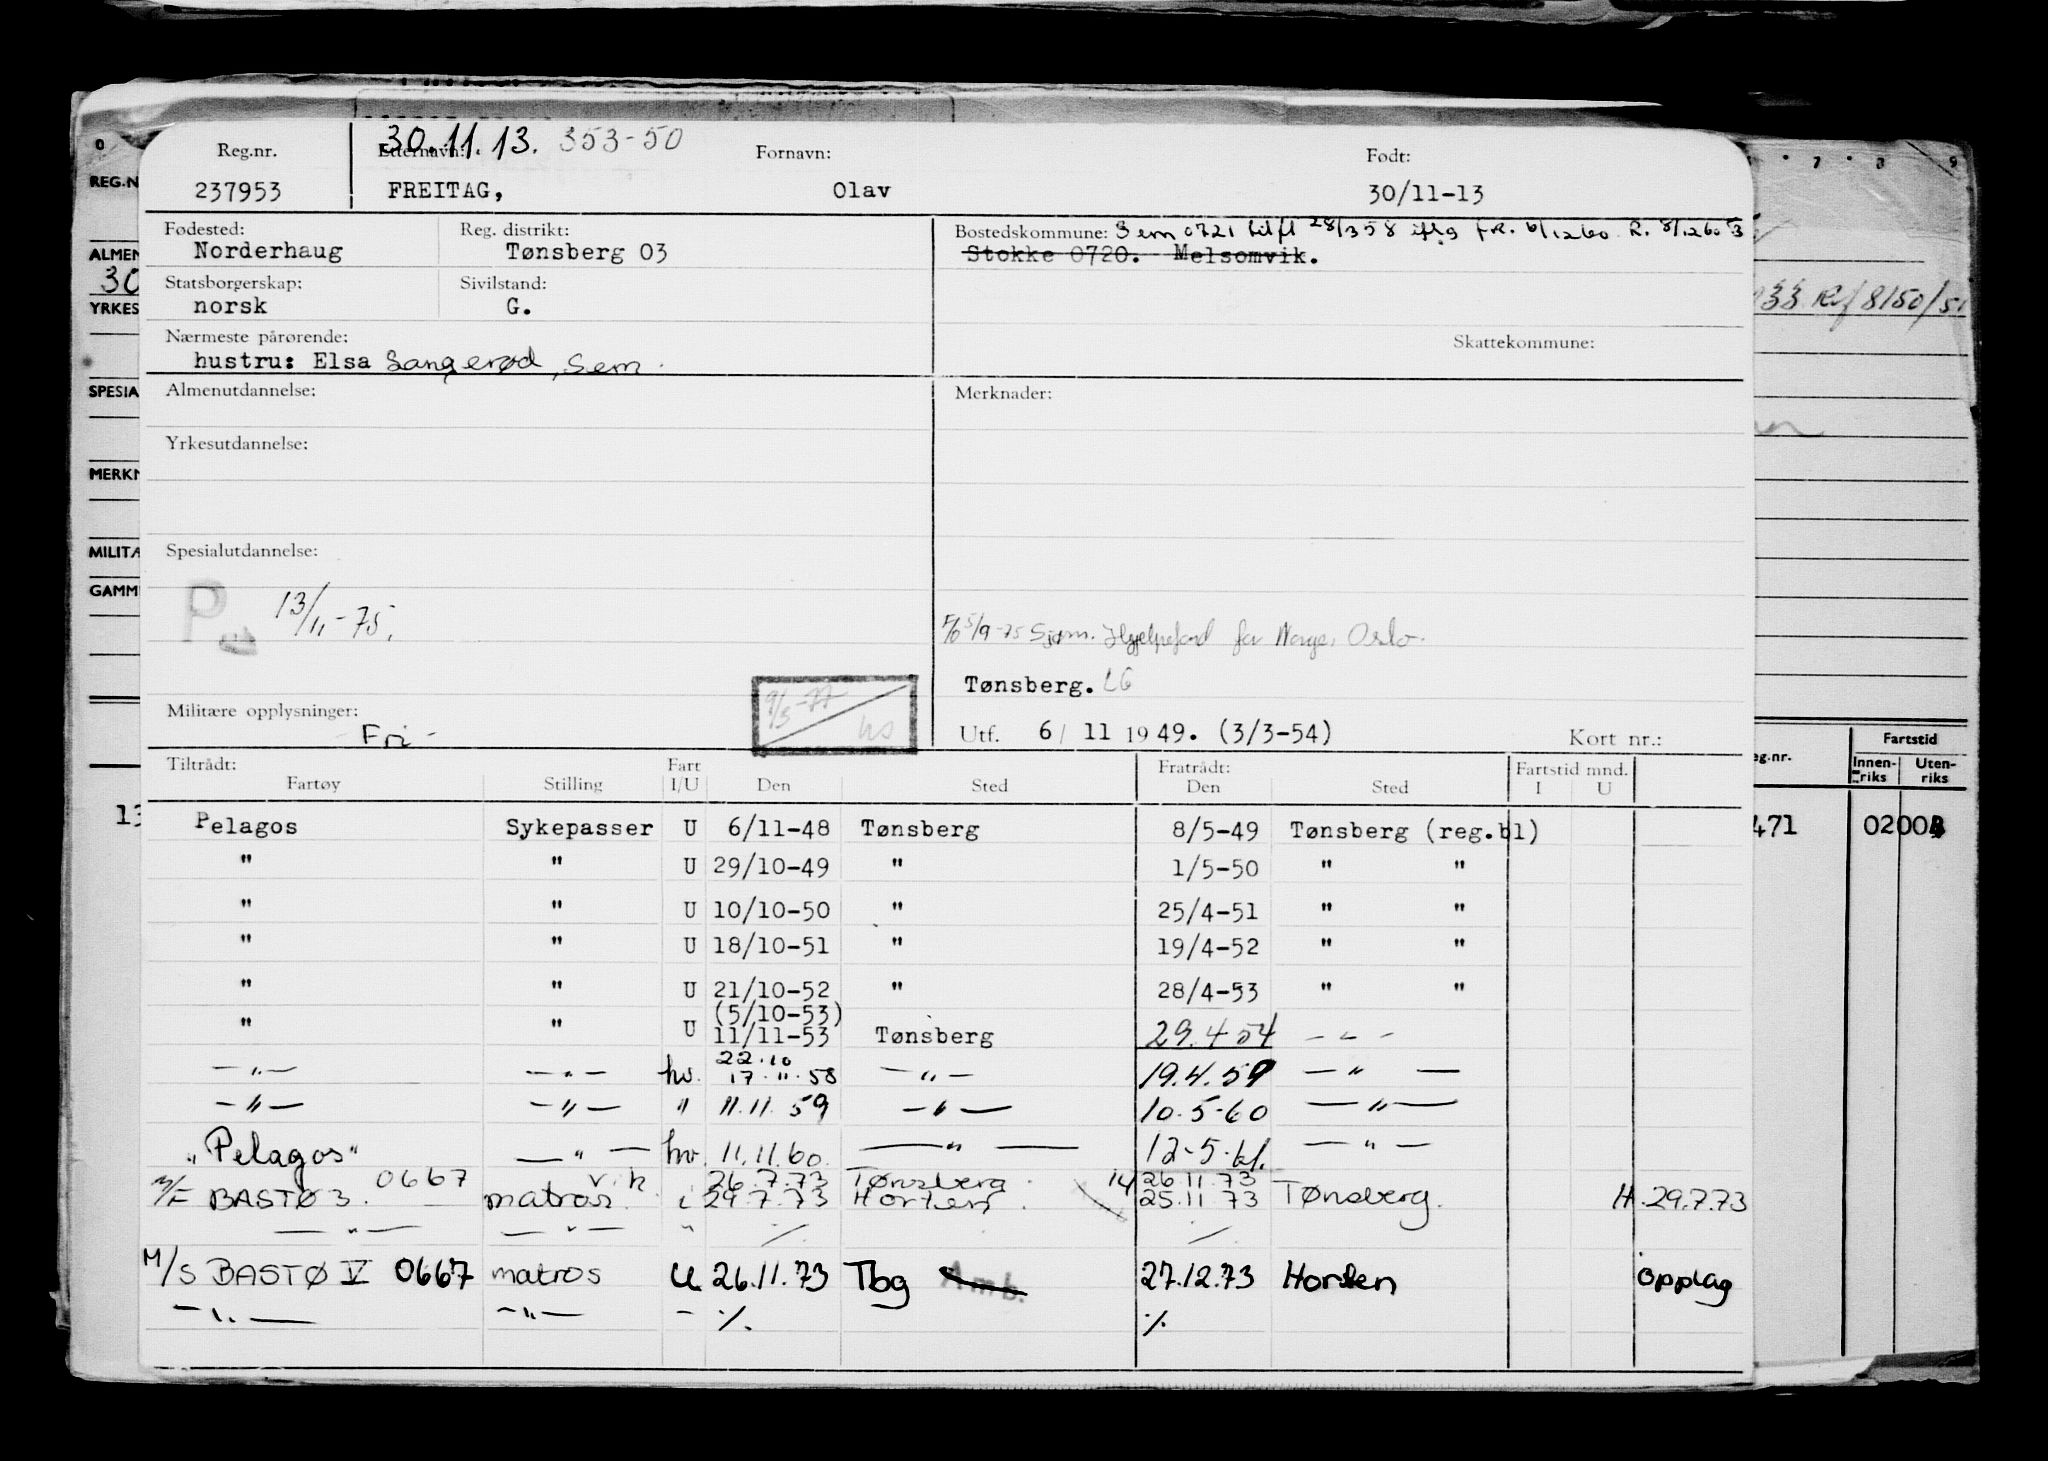 30.11.13. 353-50
Reg.nr. Etternavn: Fornavn: Født:
237953 FREITAG, Olav 30/11-13
Fødested: Reg. distrikt: Bostedskommune: Sem 0721 tilfl 28/3 58 iflg FR. 6/12 60 R. 8/12 60
Norderhaug Tønsberg 03 Stokke 0720. Melsomvik.
Statsborgerskap: Sivilstand:
norsk G.
Nærmeste pårørende: Skattekommune:
hustru: Elsa Langerød, Sem.
Almenutdannelse: Merknader:
Yrkesutdannelse:
Spesialutdannelse:
P 13/11-75.
5/9-75 Sjøm. Hjelpefond for Norge, Oslo.
Tønsberg. LG
9/3-77 hs
Militære opplysninger: Utf. 6/ 11 1949. (3/3-54) Kort nr.:
- Fri -
Tiltrådt: Fart Fratrådt: Fartstid mnd.
Fartøy Stilling I/U Den Sted Den Sted I U
Pelagos Sykepasser U 6/11-48 Tønsberg 8/5-49 Tønsberg (reg.bl)
" " U 29/10-49 " 1/5-50 " "
" " U 10/10-50 " 25/4-51 " "
" " U 18/10-51 " 19/4-52 " "
" " U 21/10-52 " 28/4-53 " "
(5/10-53)
" " U 11/11-53 Tønsberg 29.4 54 - " -
22.10
-"- -"- hv. 17.11.58 -"- 19.4.59 -"-
-"- -"- " 11.11.59 -"- 10.5-60 -"-
"Pelagos" -"- hv. 11.11.60. -"- 12-5-61. -"-
0667 v.k. 26.7.73 Tønsberg. 14 26.11.73
M/F BASTØ 3. matros. i 29.7.73 Horten. 25.11 73 Tønsberg. H. 29.7.73
-"- -"- " ./. ./.
M/S BASTØ V 0667 matros U 26.11.73 Tbg Amb. 27.12.73 Horten opplag
-"- -"- - ./. ./.
REG.N
ALMEN
30
YRKES
SPESIA
MERKN
MILITÆ
GAMM
13
7 8 9
33 Rf 8150/51
eg.nr. Fartstid
Innen-riks Uten-riks
471 02004